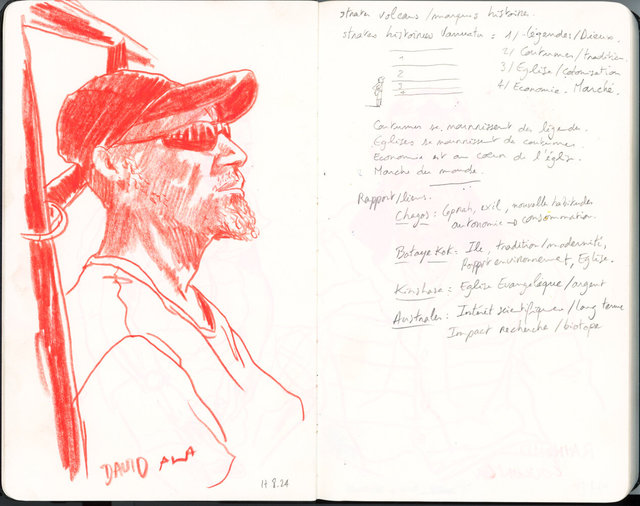 DAVID
14.8.24
strates volcans / marques histoires.
strates histoires Vanuatu : 1/ Légendes/Dieux.
2/ Coutumes/tradition
3/ Eglise/colonisation
4/ Economie. Marché.
1
2
3
Coutumes se nourrissent des légende.
Eglises se nourrissent de coutume.
Economie est au coeur de l'église.
Marche du monde.
Rapport/liens.
Chagos : Coprah, exil, nouvelle habitudes
autonomie → consommation.
Bataye Kok : Ile, tradition/modernité,
Rapport environnement, Eglise.
Kinshasa : Eglise Evangélique/argent
Australes : Intérêt scientifique/long terme
Impact recherche/biotope